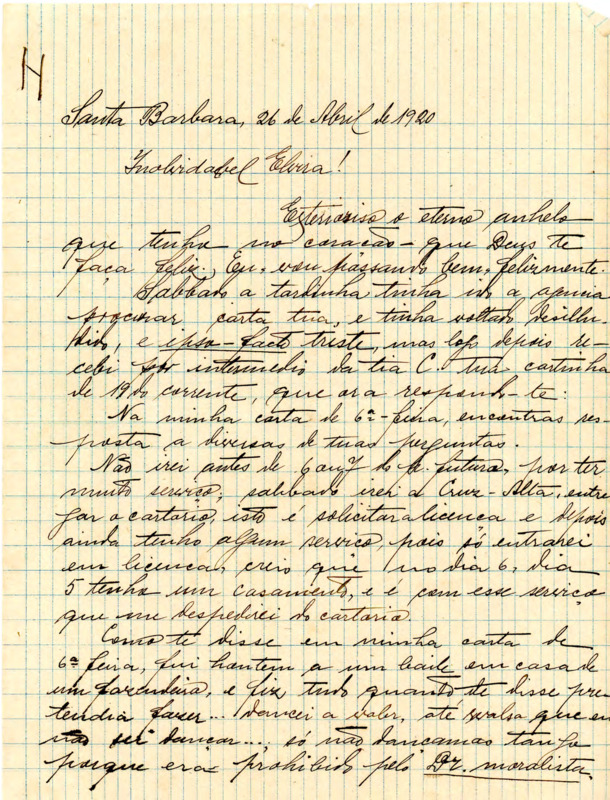 H
Santa Barbara, 26 de Abril de 1920
Inolvidabel Elvira!
Exterioriso o eterno anhelo
que tenho no coração - que Deus te
faça feliz. Eu, vou passando bem, felizmente.
Sabbado a tardinha tinha ido a agencia
procurar carta tua, e tinha voltado desillu-
dido, e ipso-facto triste, mas logo depois re-
cebi por intermedio da tia C. tua cartinha
de 19 do corrente, que ora respondo-te:
Na minha carta de 6ª-feira, encontras res-
posta a diversas de tuas perguntas.
Não irei antes de 6 ou 7 do m. futuro, por ter
muito serviço; sabbado irei a Cruz-Alta, entre
gar o cartorio, isto é solicitar a licença e depois
ainda tenho algum serviço, pois só entrarei
em licença, creio que no dia 6, dia
5 tenho um casamento, e é com esse serviço
que me despedirei do cartorio.
Como te disse em minha carta de
6ª feira, fui hontem a um baile em casa de
um fazendeiro, e fiz tudo quanto te disse pre
tendia fazer... dancei a valer, até valsa que eu
não sei dançar..., só não dançamos tango
porque era prohibido pelo Dr. moralista.